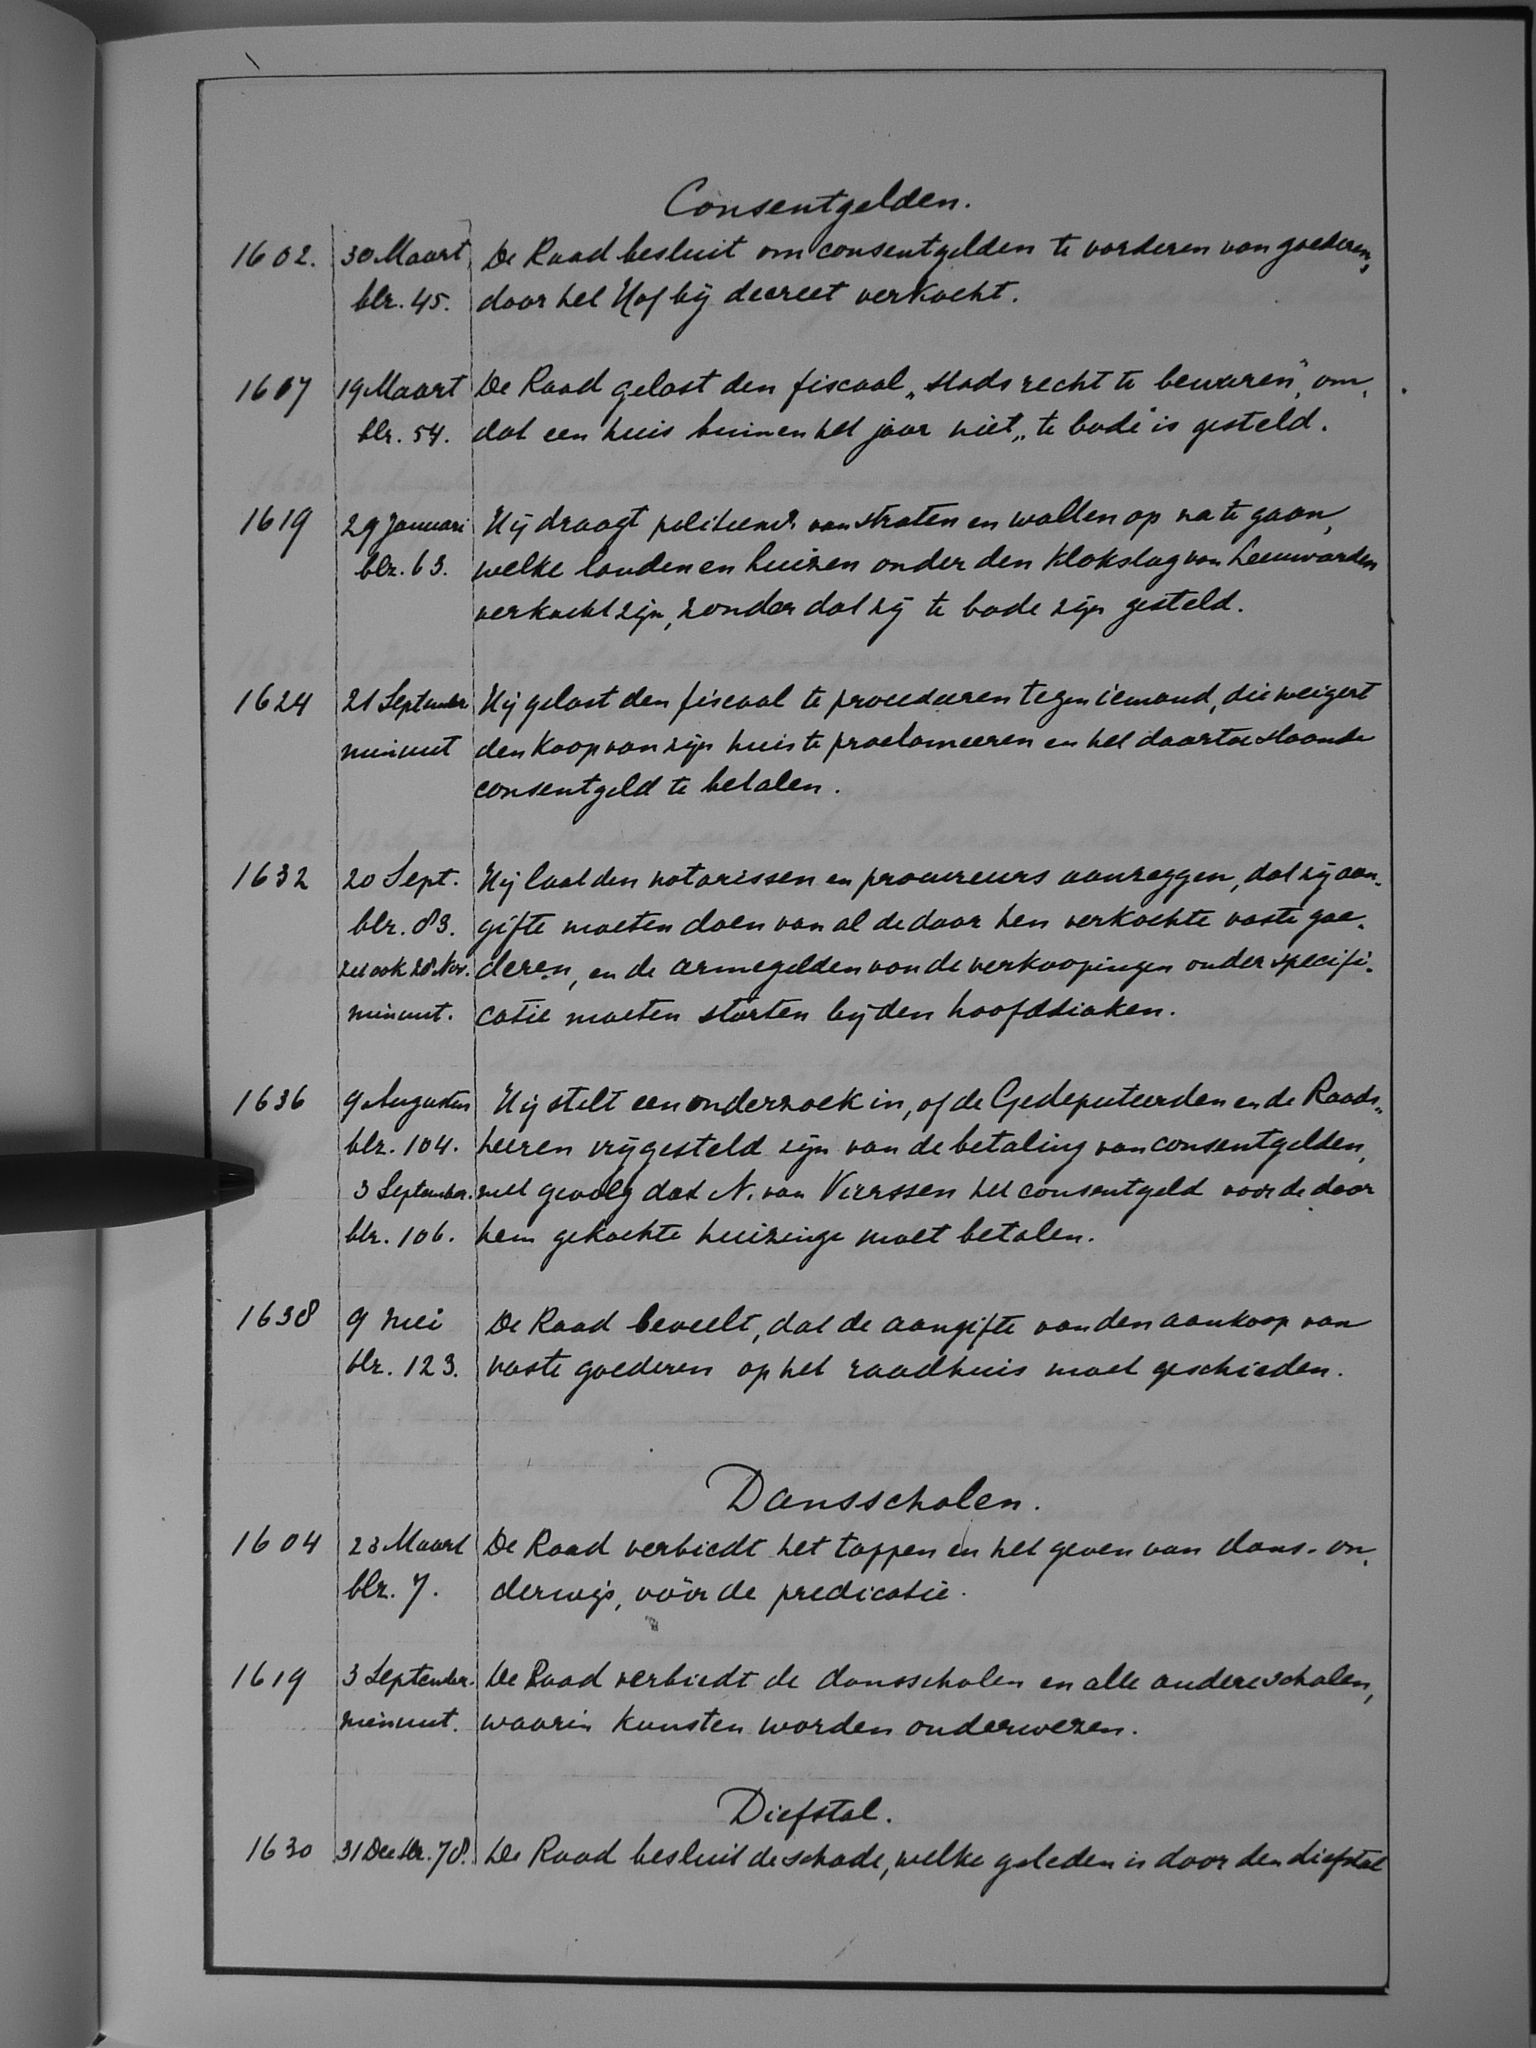 Consentgelden.
1602. 30 Maart, De Raad besluit om consentgelden te vorderen van goederen,
blz. 45. door het Hof bij decreet verkocht.
1607 19 Maart De Raad gelast den fiscaal „stads recht te bewaren”, om-
blz. 54. dat een huis binnen het jaar niet „te bode” is gesteld.
1619 29 Januari Hij draagt van straten en wallen op na te gaan,
blz. 63. welke landen en huizen onder den klokslag van Leeuwarden
verkocht zijn, zonder dat zij te bode zijn gesteld.
1624 21 September Hij gelast den fiscaal te procedeeren tegen iemand, die weigert
minuut den koop van zijn huis te proclameeren en het daartoe staande
consentgeld te betalen.
1632 20 Sept. Hij laat den notarissen en procureurs aanzeggen, dat zij aan-
blz. 83. gifte moeten doen van al de door hen verkochte vaste goe-
zie ook 28 Nov. deren, en de armegelden van de verkoopingen onder specifi-
minuut. catie moeten storten bij den hoofddiaken.
1636 9 Augustus Hij stelt een onderzoek in, of de Gedeputeerden en de Raads-
blz. 104. heeren vrijgesteld zijn van de betaling van consentgelden,
3 September. met gevolg dat N. van Vierssen het consentgeld voor de door
blz. 106. hem gekochte huizinge moet betalen.
1638 9 Mei De Raad beveelt, dat de aangifte van den aankoop van
blz. 123. vaste goederen op het raadhuis moet geschieden.
Dansscholen.
1604 23 Maart De Raad verbiedt het tappen en het geven van dans-on-
blz. 7. derwijs, vóór de predicatie.
1619 3 September. De Raad verbiedt de dansscholen en alle andere scholen,
minuut. waarin kunsten worden onderwezen.
Diefstal.
1630 31 Dec blz. 78. De Raad besluit de schade, welke geleden is door den diefstal